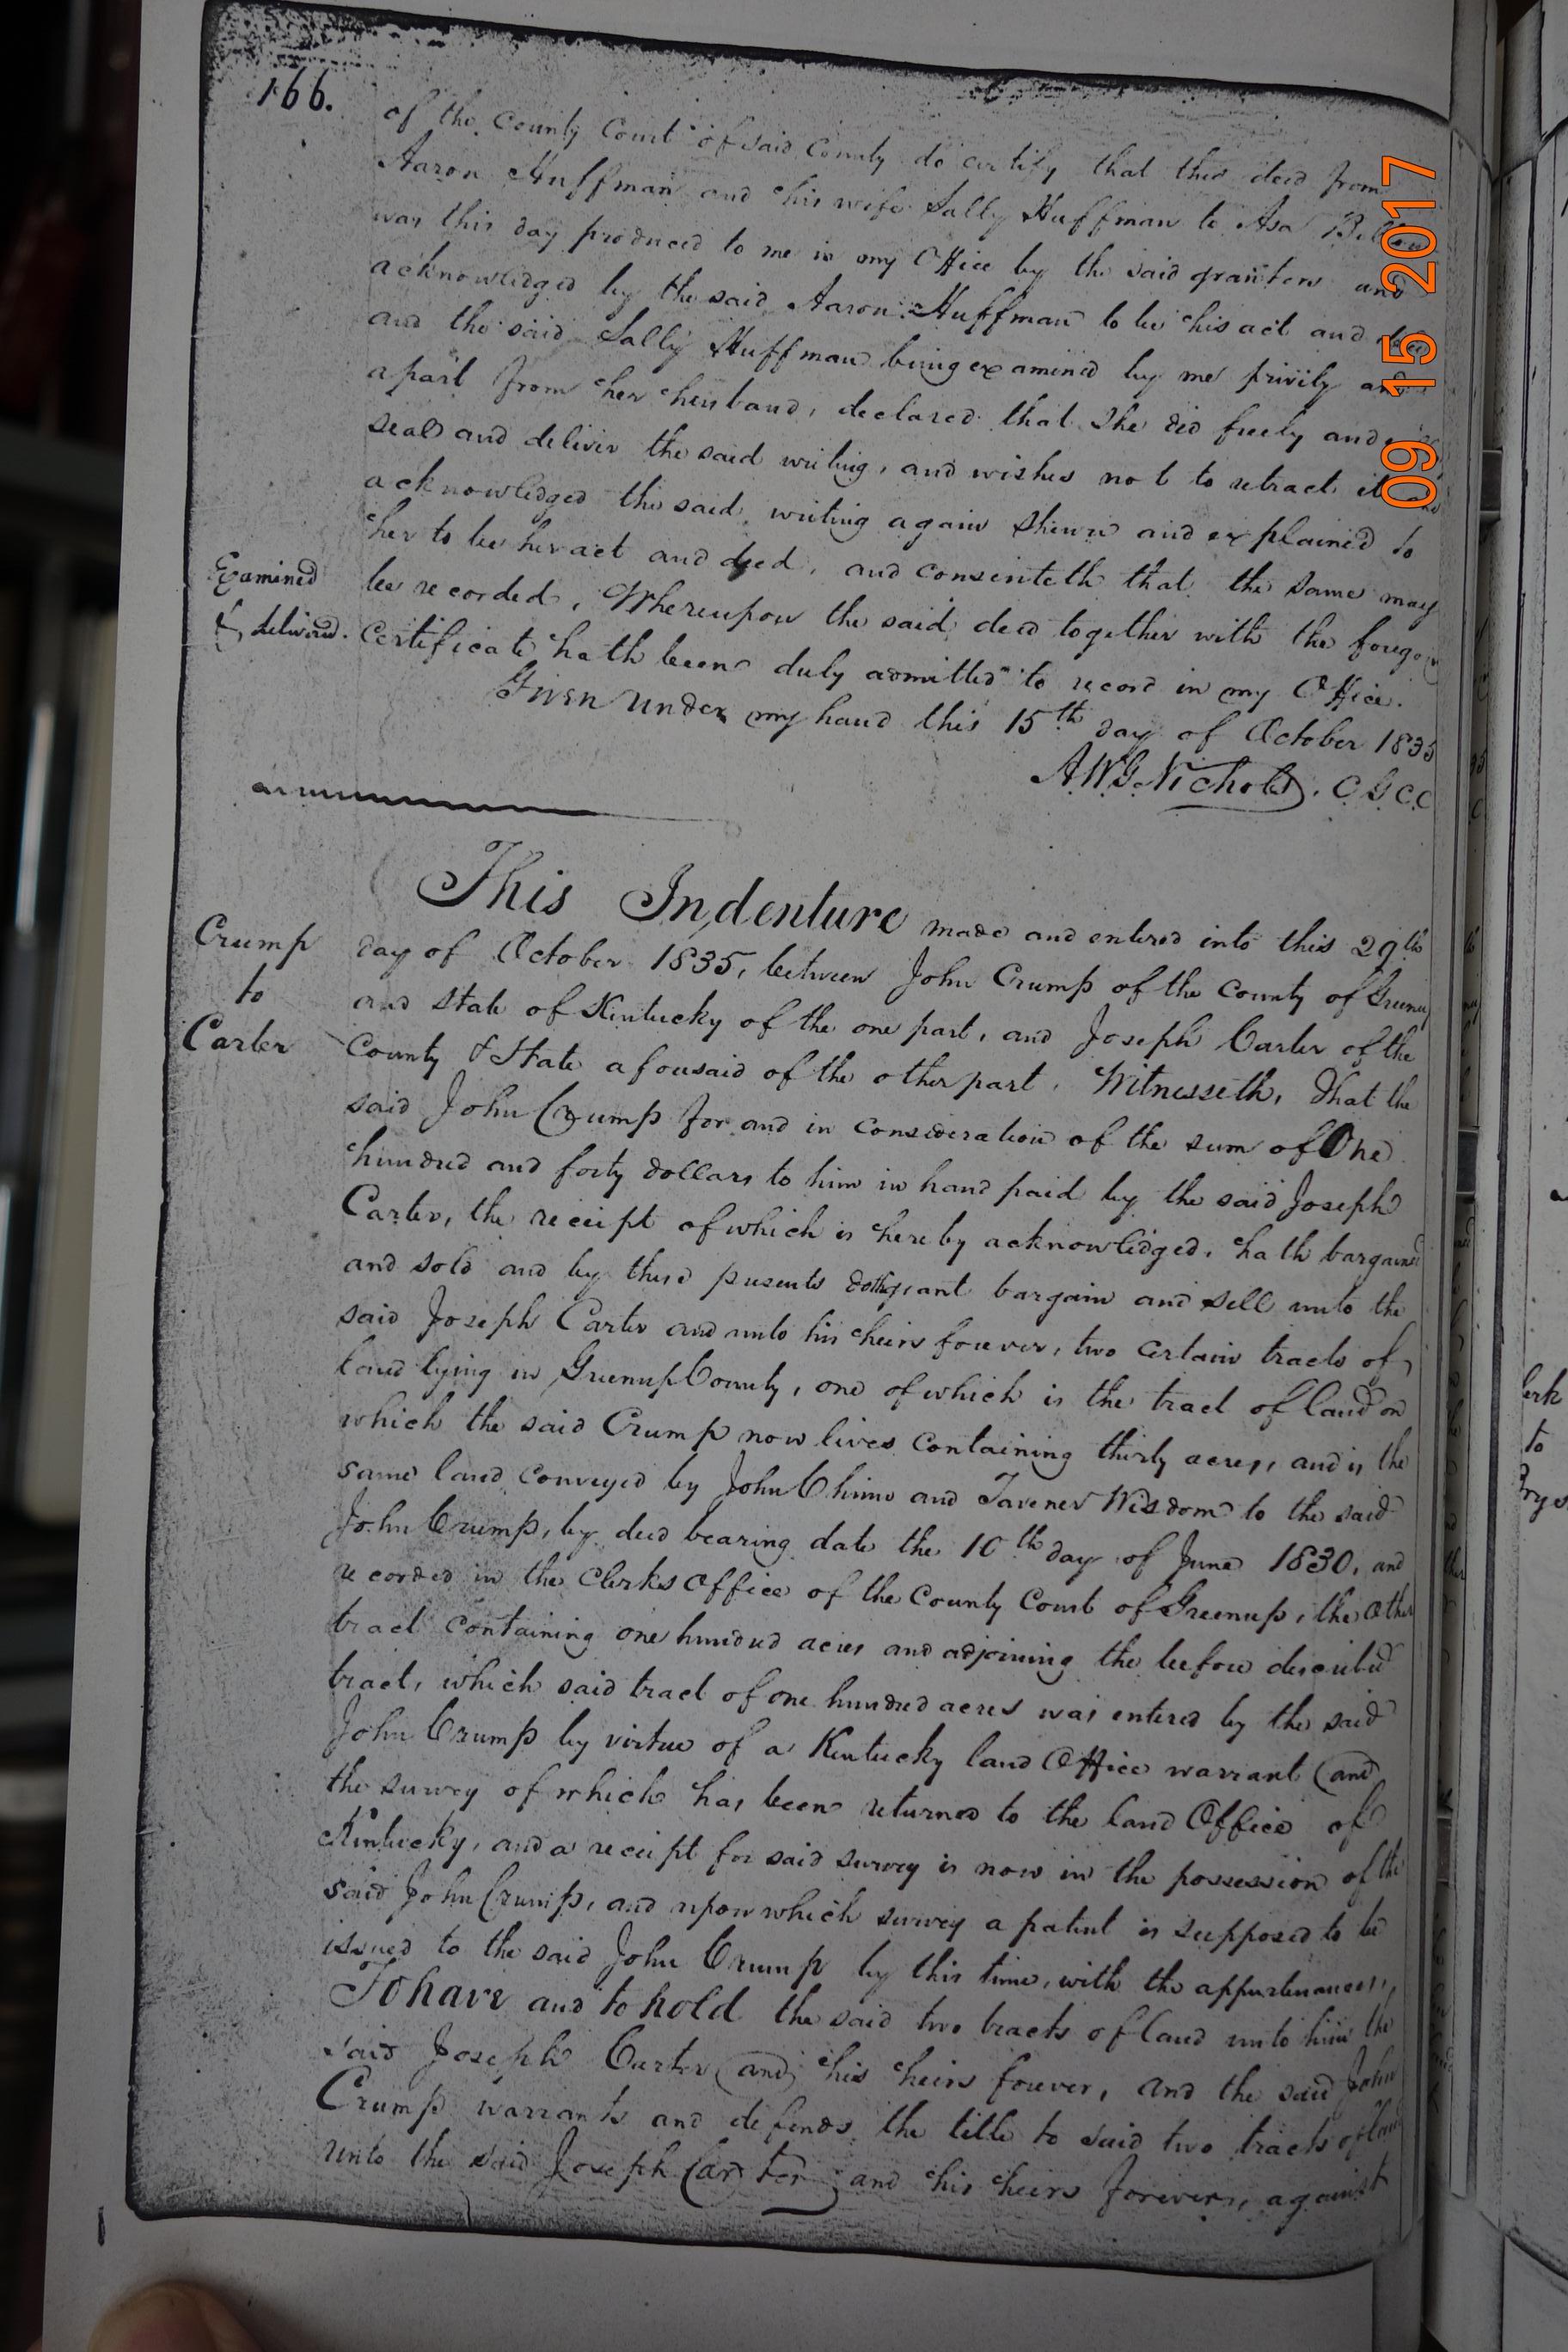 166.
of the County Court of said County do certify that this deed from
Aaron Huffman and his wife Sally Huffman to Asa
was this day produced to me in my Office by the said grantors and
acknowledged by the said Aaron Huffman to be his act and deed
and the said Sally Huffman being examined by me privily and
apart from her husband, declared that She did freely and
seal and deliver the said writing, and wishes not to retract it
acknowledged the said writing again shewn and explained to
her to be her act and deed, and consenteth that the same may
Examined
& delivered.
be recorded, Whereupon the said deed together with the foregoing
certificate hath been duly admitted to record in my Office.
Given under my hand this 15th day of October 1835
A.W.G. Nichols, C.G.C.C
This Indenture made and entered into this 29th
Crump
to
Carter
day of October 1835, between John Crump of the County of Greenup
and State of Kentucky of the one part, and Joseph Carter of the
County & State afousaid of the other part, Witnesseth, That the
said John Crump for and in consideration of the sum of One
hundred and forty dollars to him in hand paid by the said Joseph
Carter, the receipt of which is hereby acknowledged, hath bargained
and sold and by these presents doth grant bargain and sell unto the
said Joseph Carter and unto his heirs forever, two certain tracts of
land lying in Greenup County, one of which is the tract of land on
which the said Crump now lives containing thirty acres, and is the
same land conveyed by John Chinn and Tavener Wisdom to the said
John Crump, by deed bearing date the 10th day of June 1830, and
recorded in the Clerks Office of the County Court of Greenup, the other
tract containing one hundred acres and adjoining the before described
tract, which said tract of one hundred acres was entered by the said
John Crump by virtue of a Kentucky land Office warrant (and
the survey of which has been returned to the land Office of
Kentucky, and a receipt for said survey is now in the possession of the
said John Crump, and upon which survey a patent is supposed to be
issued to the said John Crump by this time, with the appurtenances,
To have and to hold the said two tracts of land unto him the
said Joseph Carter (and) his heirs forever, and the said John
Crump warrants and defends the title to said two tracts of land
unto the said Joseph Carter and his heirs forever, against
09 15 2017
erk
to